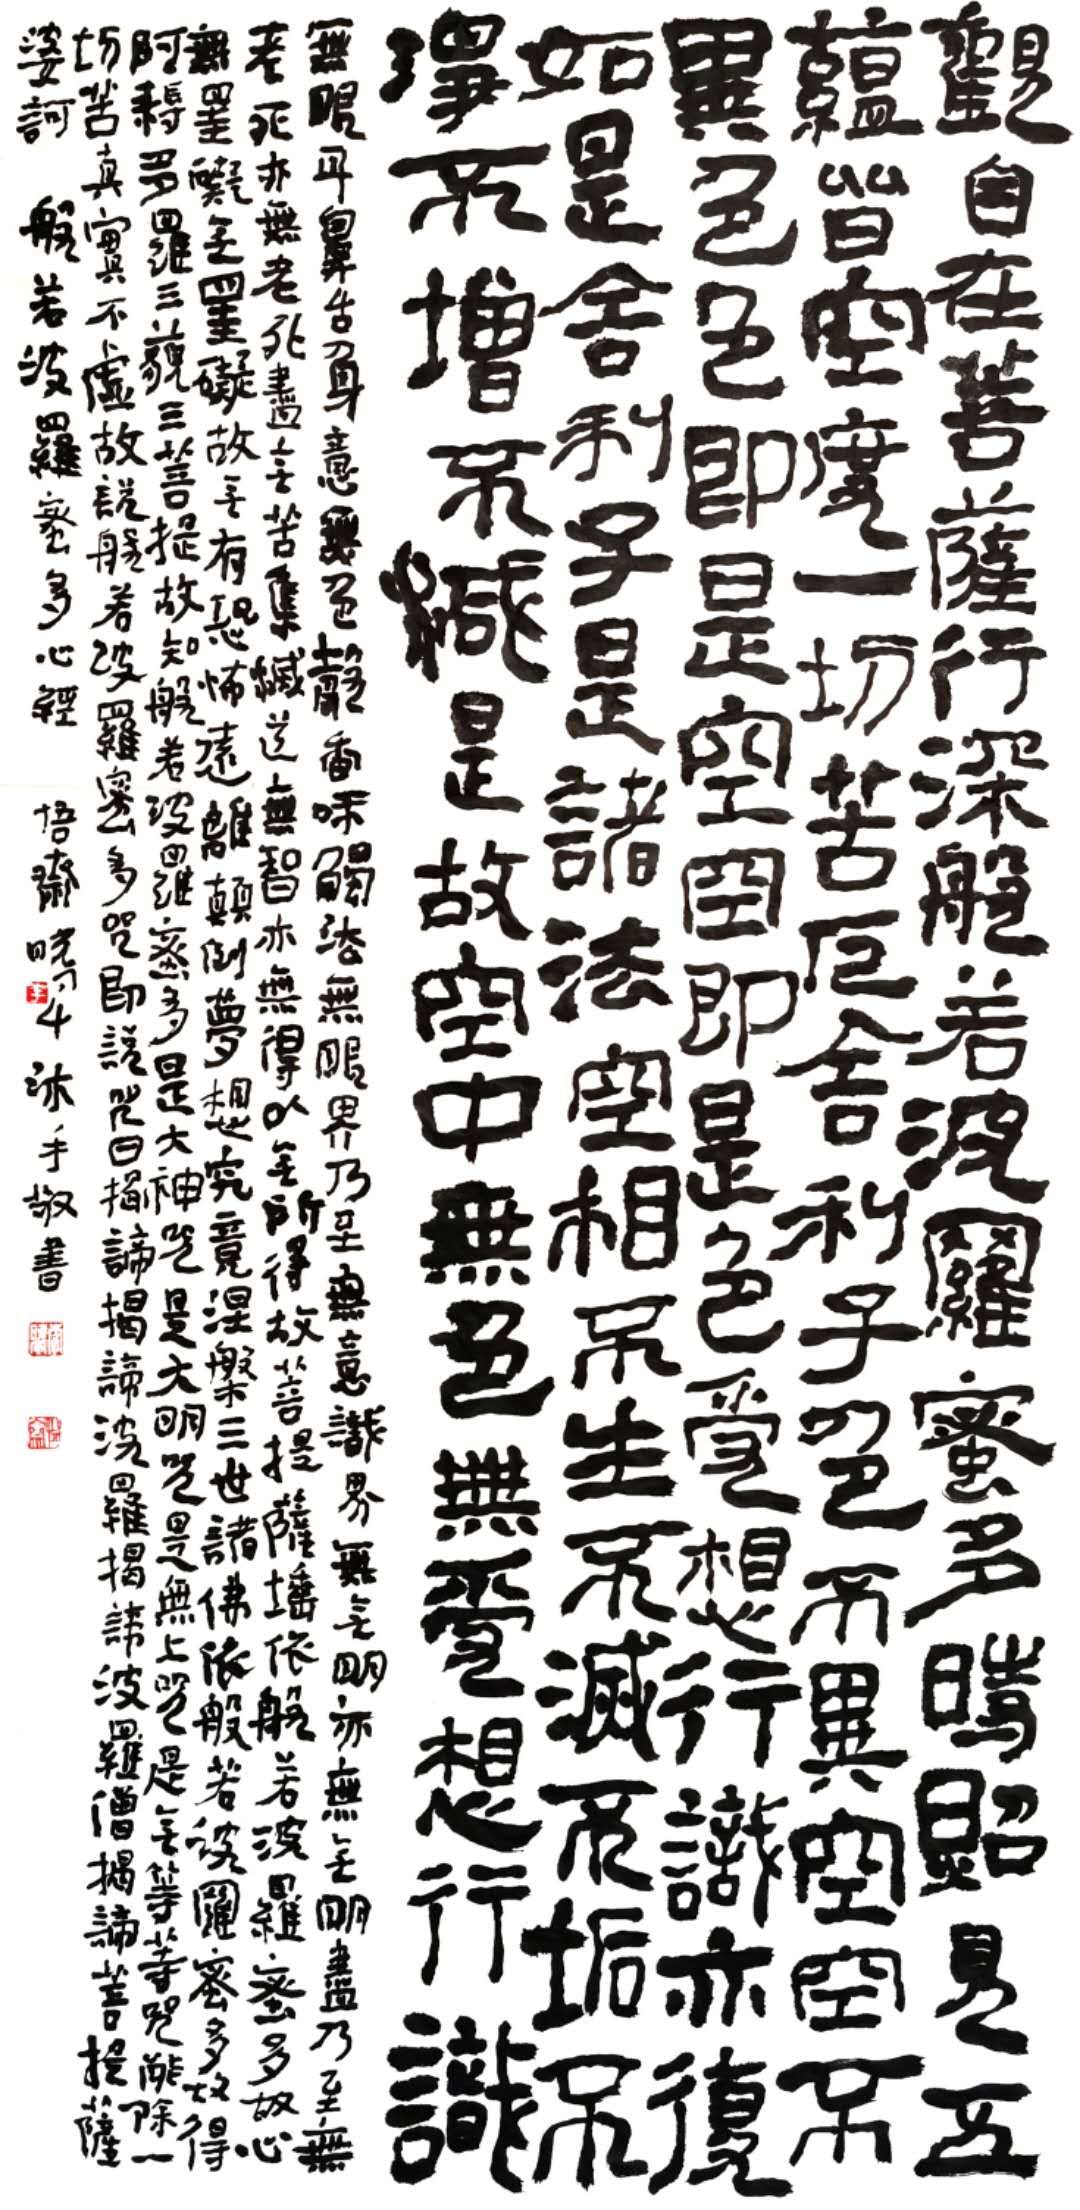 觀自在菩薩行深般若波羅蜜多時照見五
蘊皆空度一切苦厄舍利子色不異空空不
異色色即是空空即是色受想行識亦復
如是舍利子是諸法空相不生不滅不垢不
淨不增不減是故空中無色無受想行識
無眼耳鼻舌身意無色聲香味觸法無眼界乃至無意識界無無明亦無無明盡乃至無
老死亦無老死盡無苦集滅道無智亦無得以無所得故菩提薩埵依般若波羅蜜多故心
無罣礙無罣礙故無有恐怖遠離顛倒夢想究竟涅槃三世諸佛依般若波羅蜜多故得
阿耨多羅三藐三菩提故知般若波羅蜜多是大神咒是大明咒是無上咒是無等等咒能除一
切苦真實不虛故說般若波羅蜜多咒即說咒曰揭諦揭諦波羅揭諦波羅僧揭諦菩提薩
婆訶 般若波羅蜜多心經 悟齋曉 沐手敬書